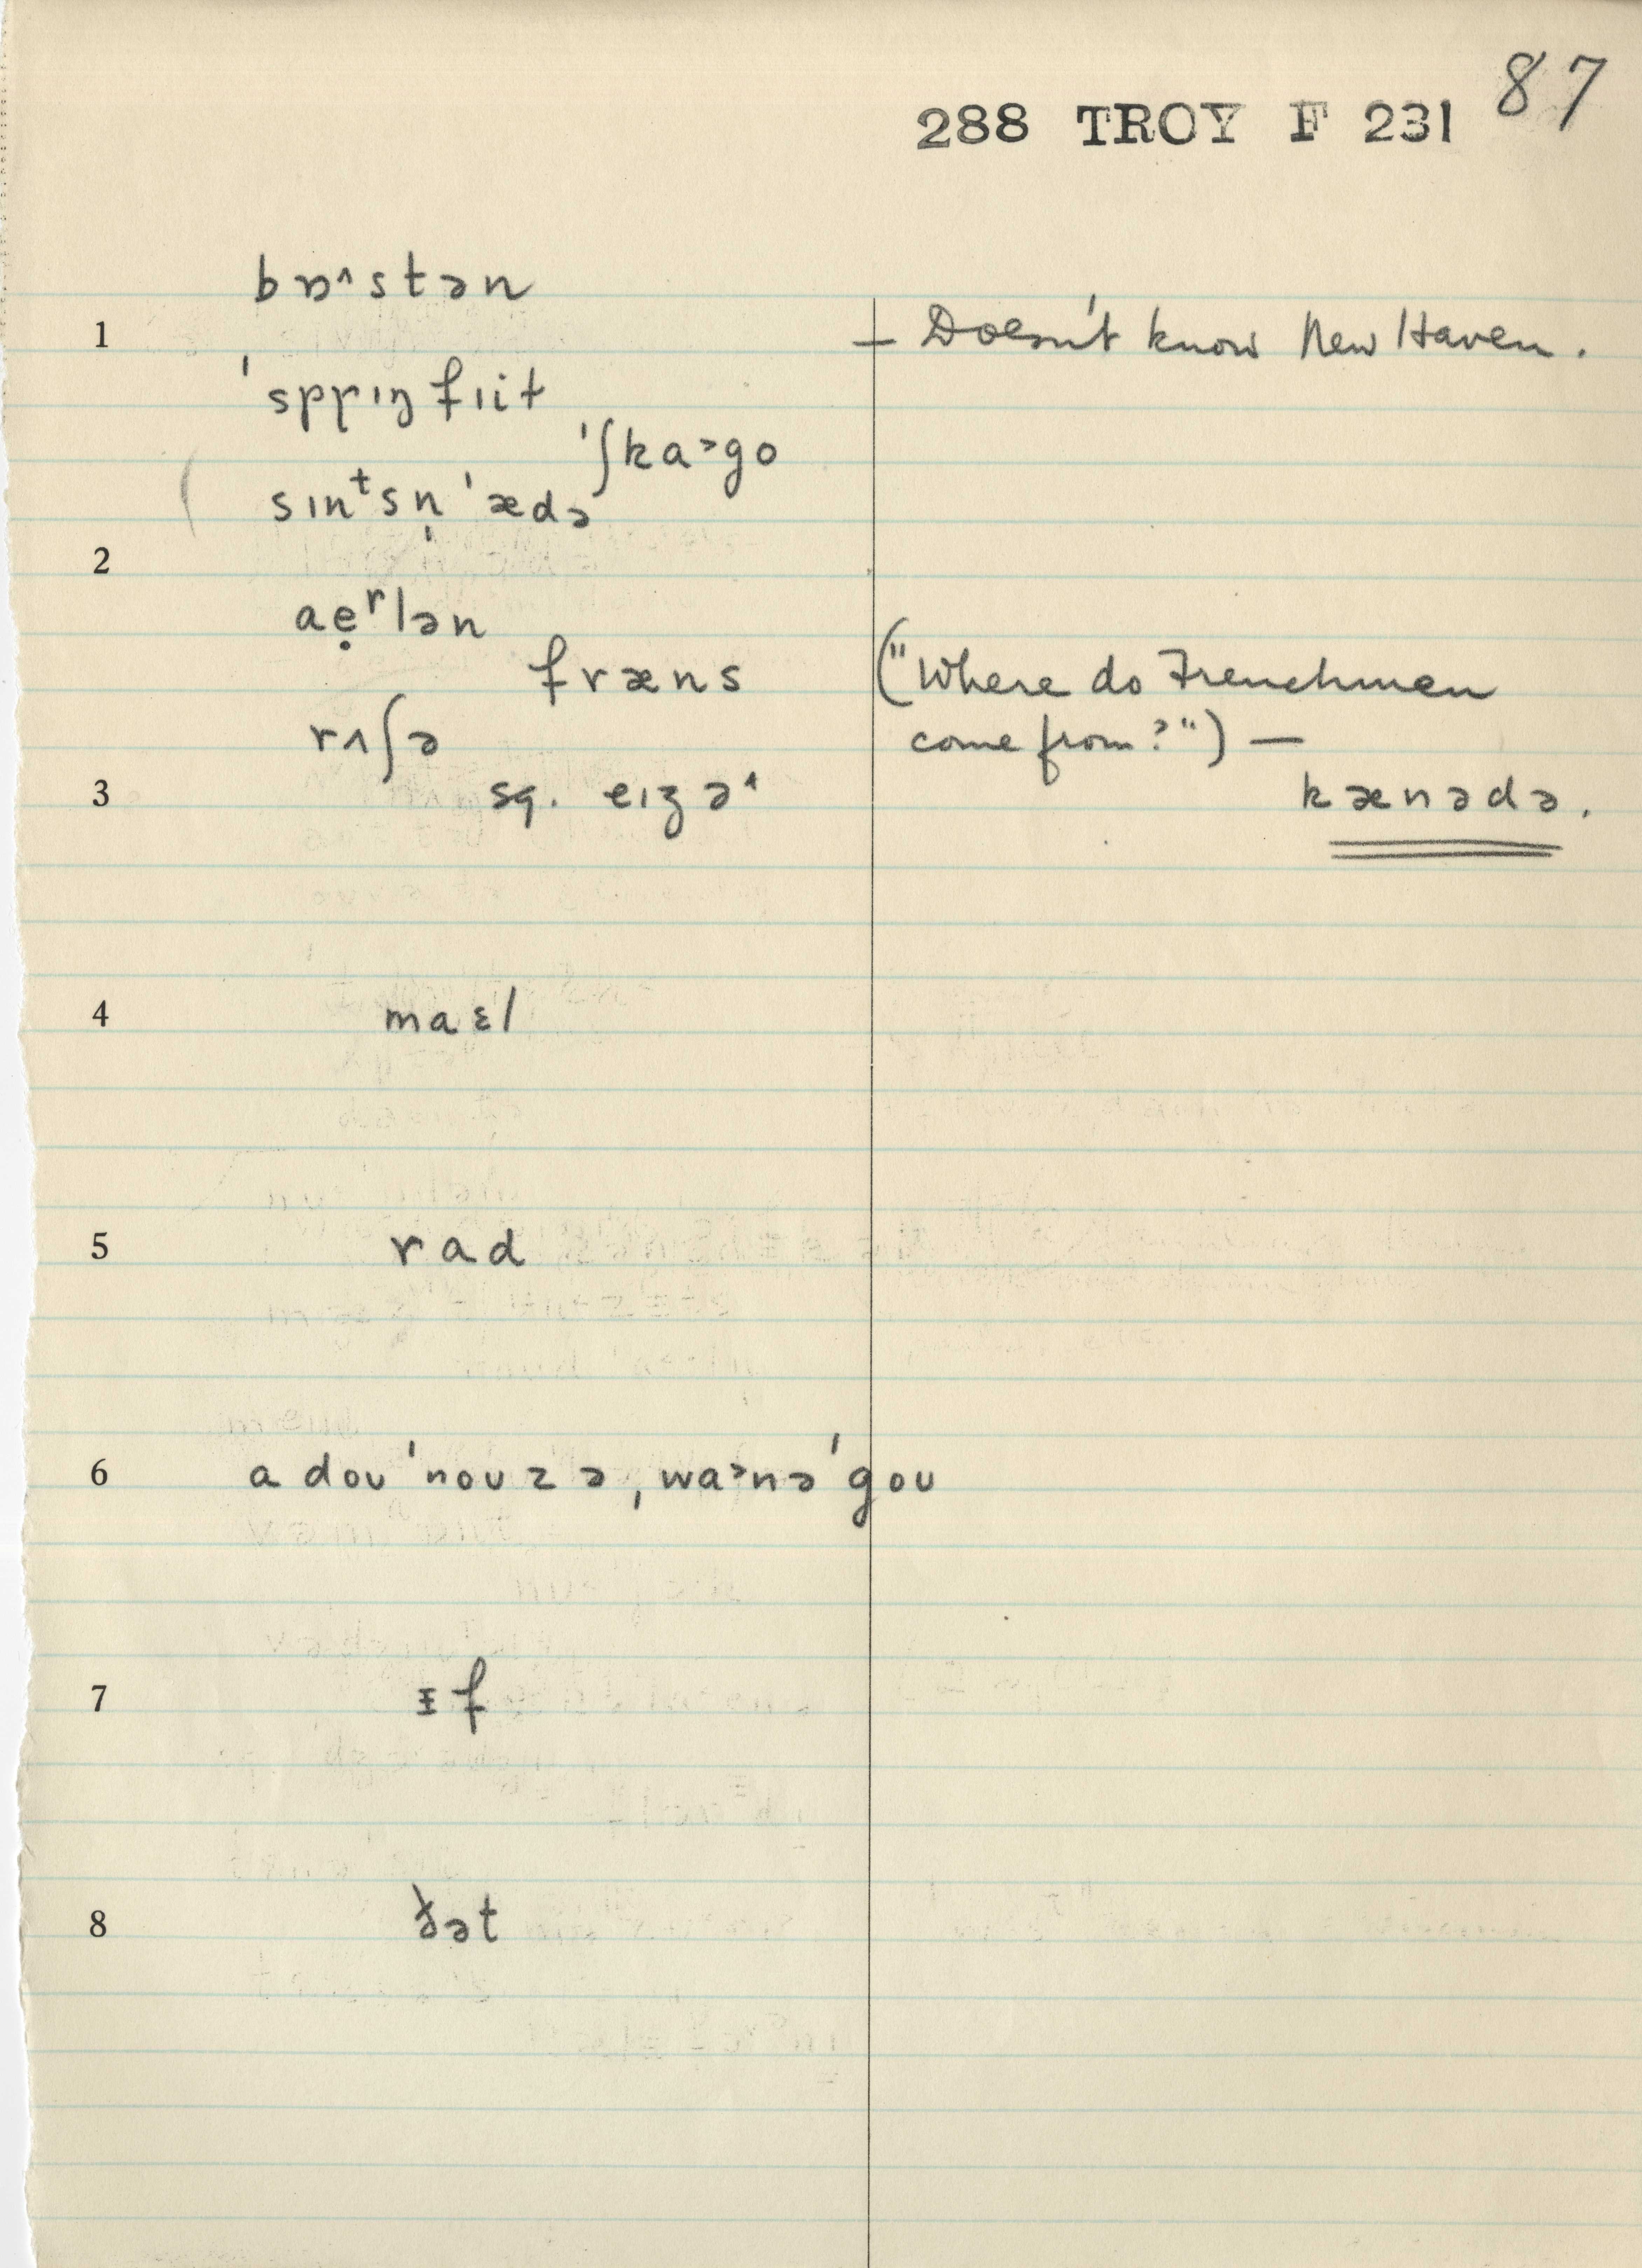 87
288 TROY F 231
bɒ˄stən
1
— Doesn't know New Haven.
ˈsprɪŋfɪit
ˈʃka˃go
sɪnᵗsn̩ˈædə
2
aẹʳlən
fræns
("Where do Frenchmen
rʌʃə
come from?") —
3
sq. eɪʒə˄
kænədə.
4
maɛl
5
rad
6
a doʊˈnoʊzə, wa˃nəˈgoʊ
7
ɪf
8
ðət